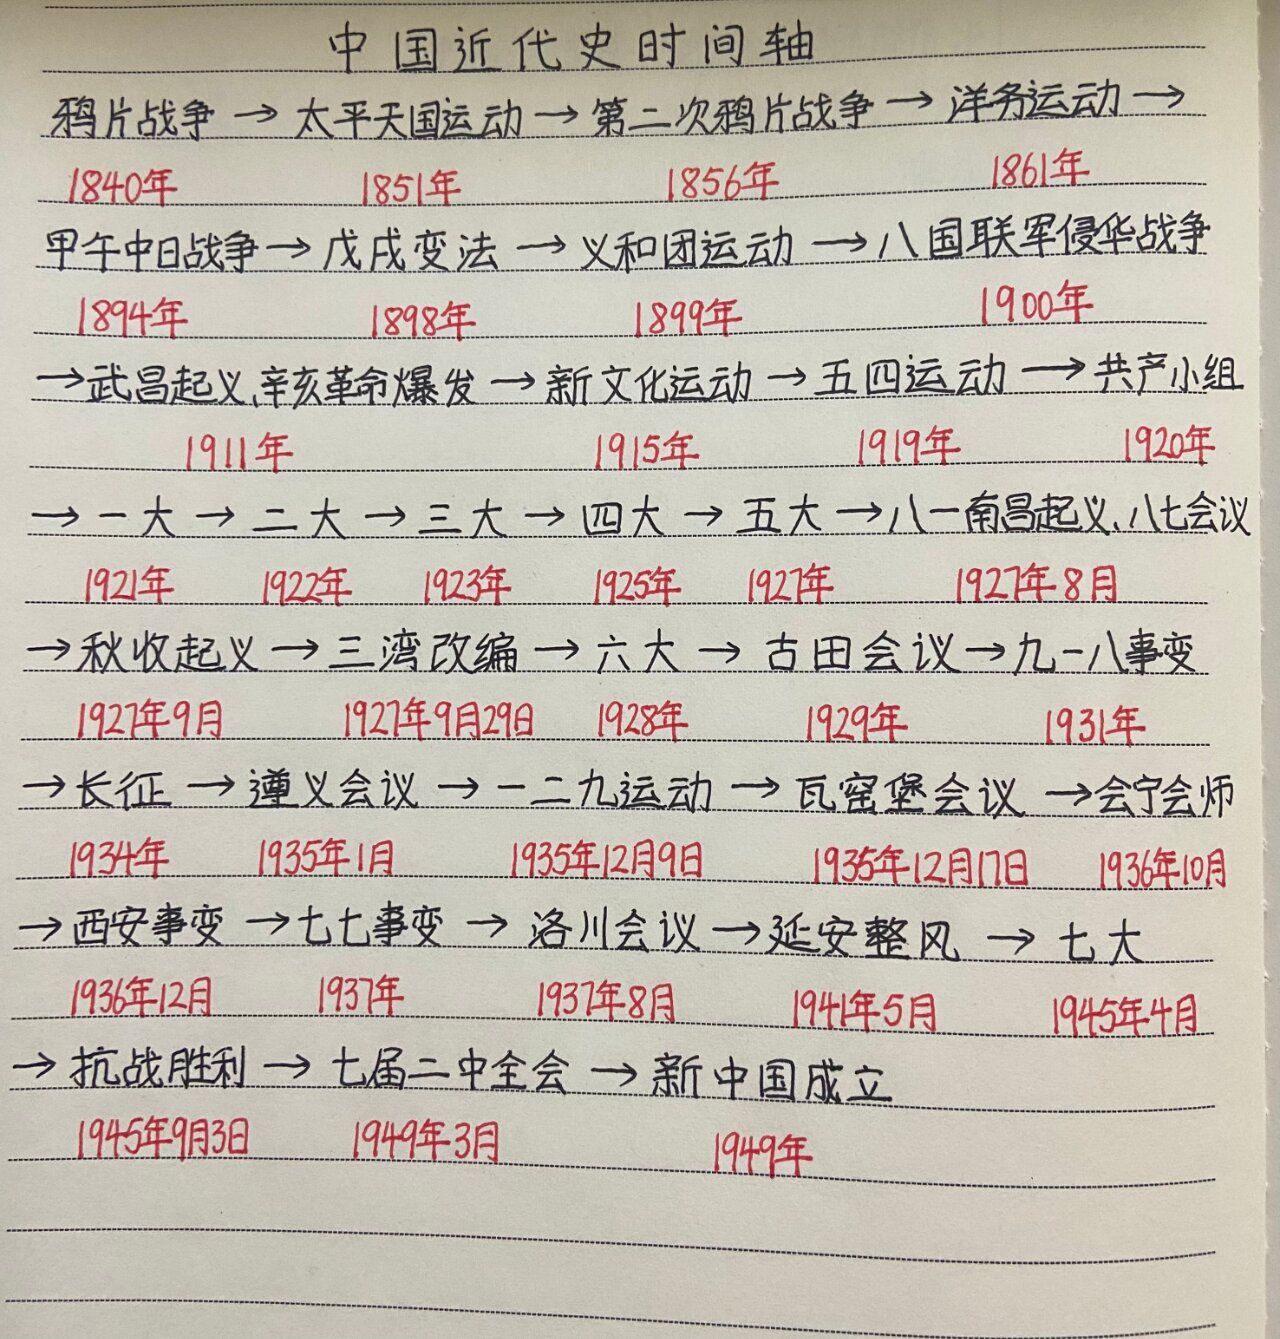 中国近代史时间轴
鸦片战争→太平天国运动→第二次鸦片战争→洋务运动→
1840年 1851年 1856年 1861年
甲午中日战争→戊戌变法→义和团运动→八国联军侵华战争
1894年 1898年 1899年 1900年
→武昌起义、辛亥革命爆发→新文化运动→五四运动→共产小组
1911年 1915年 1919年 1920年
→一大→二大→三大→四大→五大→八一南昌起义、八七会议
1921年 1922年 1923年 1925年 1927年 1927年8月
→秋收起义→三湾改编→六大→古田会议→九一八事变
1927年9月 1927年9月29日 1928年 1929年 1931年
→长征→遵义会议→一二九运动→瓦窑堡会议→会宁会师
1934年 1935年1月 1935年12月9日 1935年12月17日 1936年10月
→西安事变→七七事变→洛川会议→延安整风→七大
1936年12月 1937年 1937年8月 1941年5月 1945年4月
→抗战胜利→七届二中全会→新中国成立
1945年9月3日 1949年3月 1949年